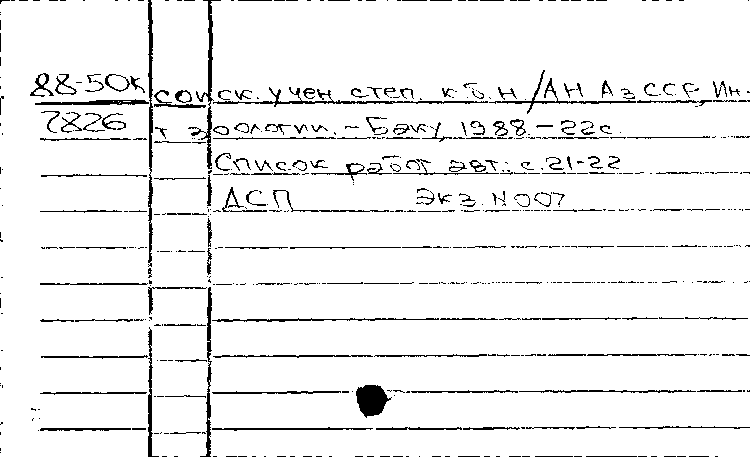 88-50к соиск. учен степ. к.б.н/АН АзССР, Ин-
2826 т зоологии. - Баку, 1988. - 22с.
Список работ авт.: с.21-22
ДСП Экз. N007